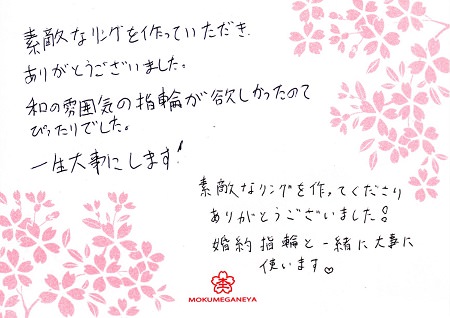 素敵なリングを作っていただき
ありがとうございました。
和の雰囲気の指輪が欲しかったので
ぴったりでした。
一生大事にします!
素敵なリングを作ってくださり
ありがとうございました!
婚約指輪と一緒に大事に
使います♡
MOKUMEGANEYA